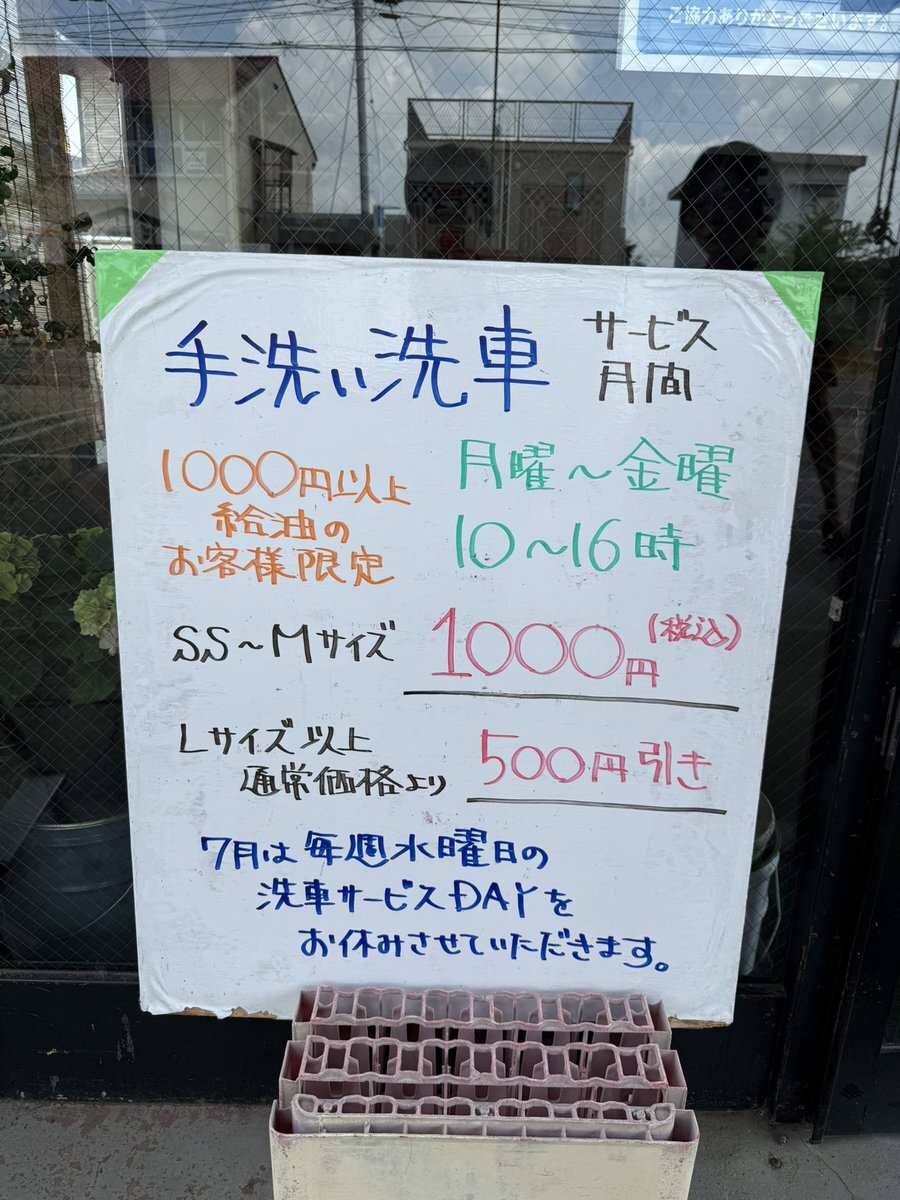 ご協力ありがとうございます。
手洗い洗車
サービス
月間
1000円以上
給油の
お客様限定
月曜～金曜
10～16時
SS～Mサイズ
1000円
(税込)
Lサイズ以上
通常価格より
500円引き
7月は毎週水曜日の
洗車サービスDAYを
お休みさせていただきます。